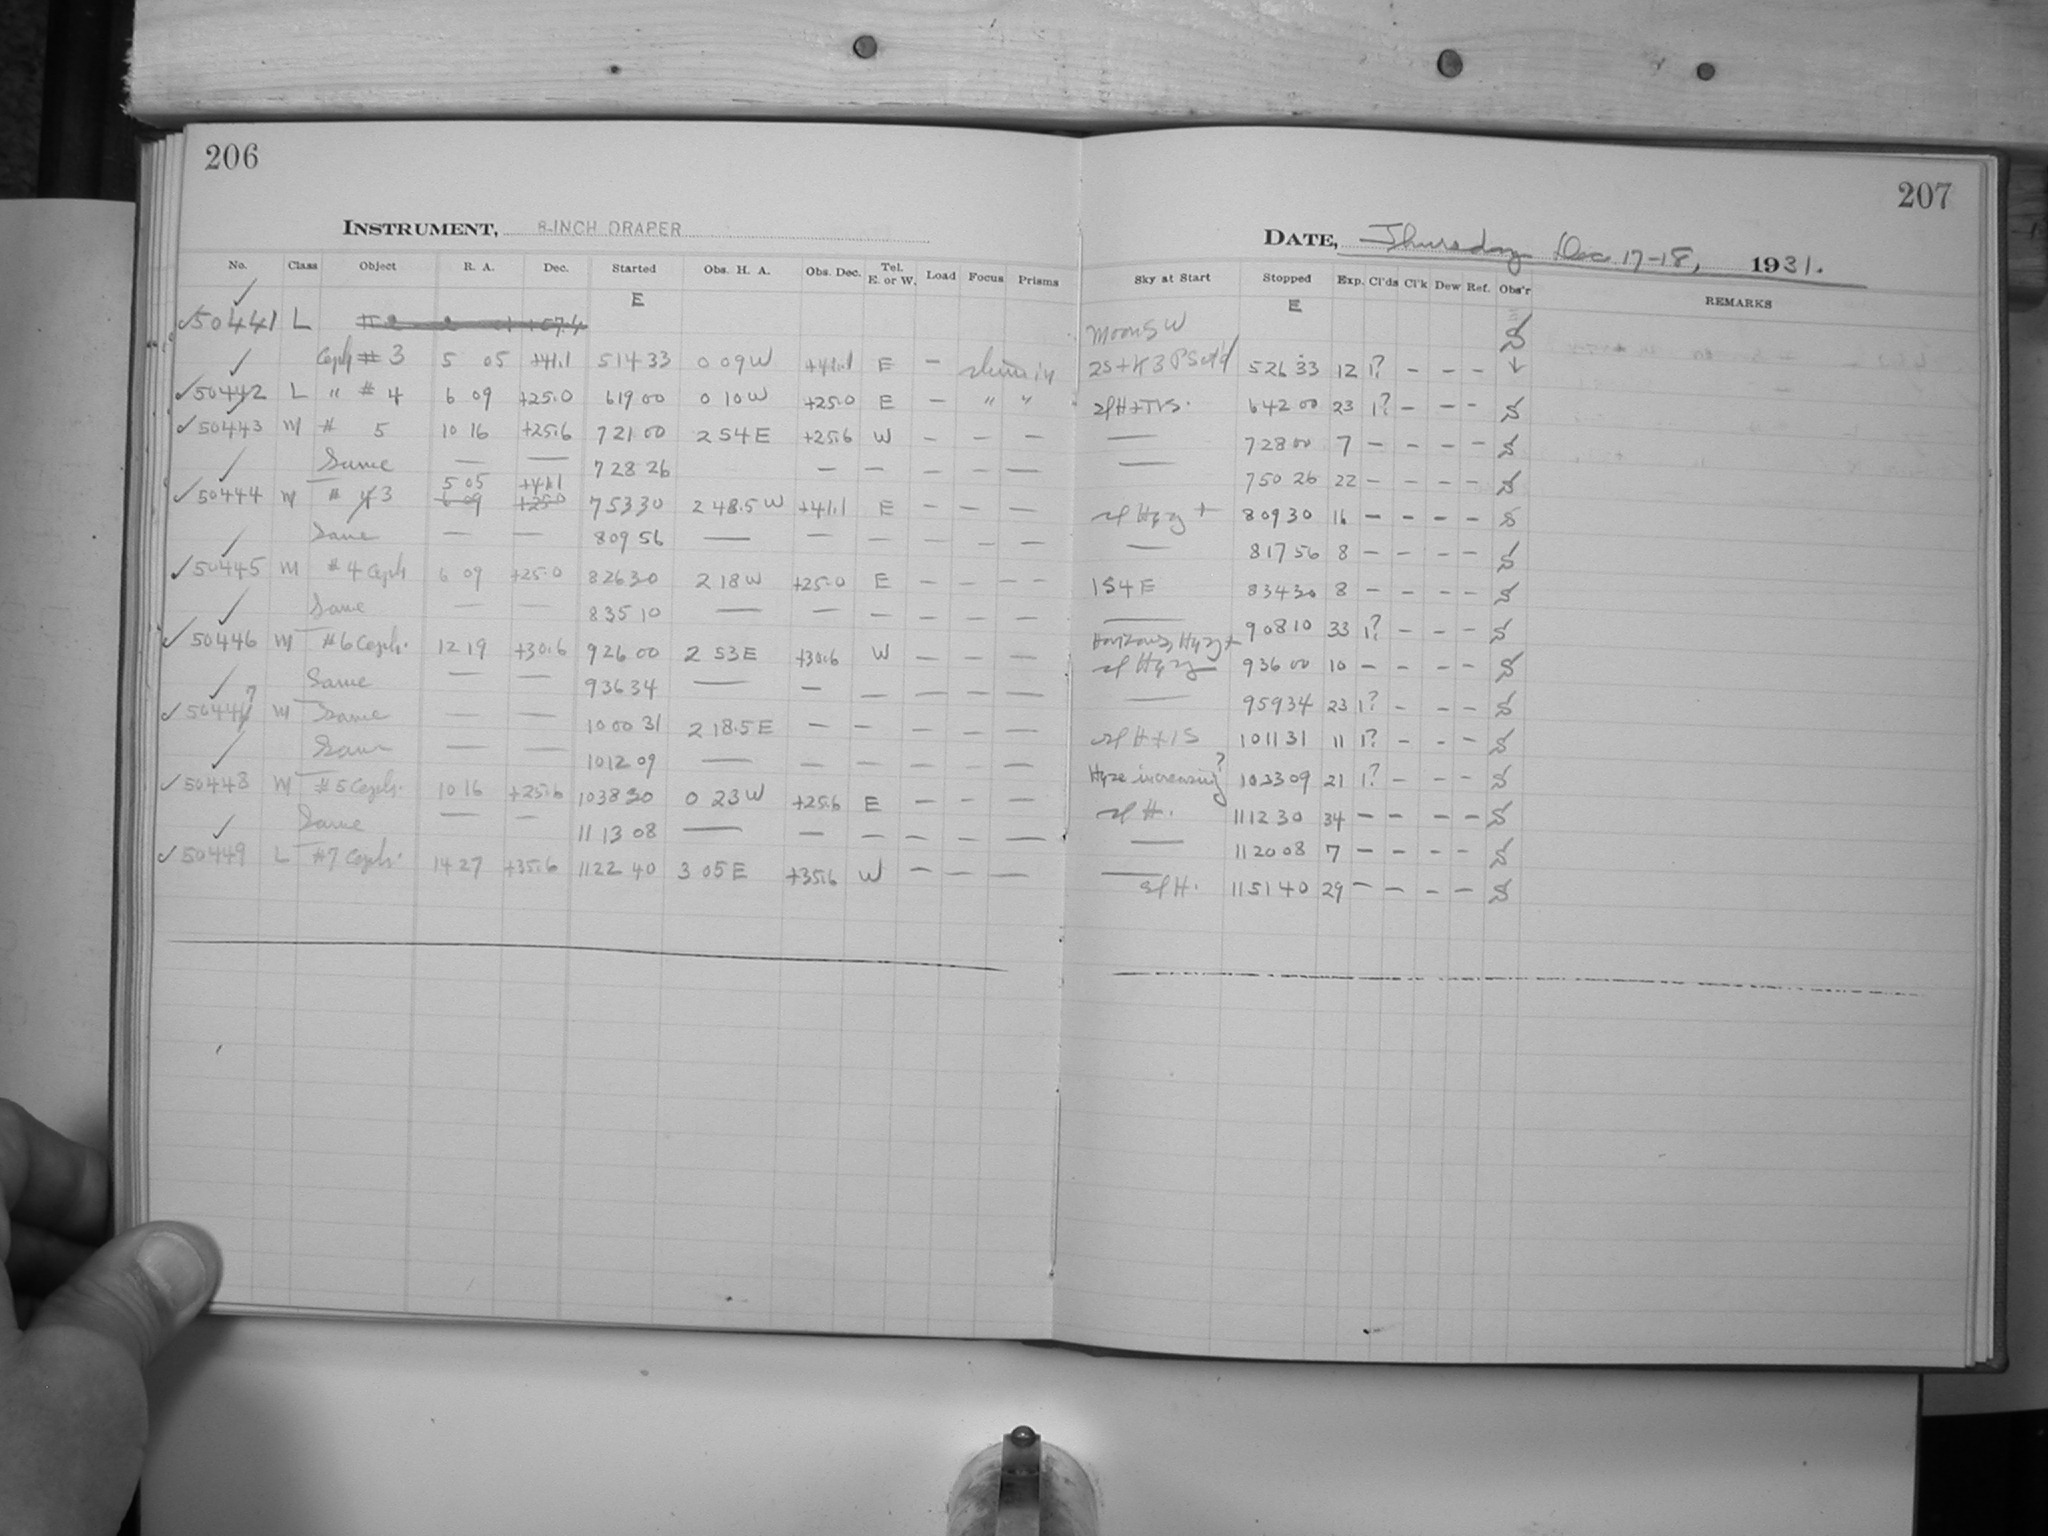 206
INSTRUMENT, 8-INCH DRAPER
No. Class Object R. A. Dec. Started Obs. H. A. Obs. Dec. Tel. E. or W. Load Focus Prisms
E
50441 L
Ceph # 3 5 05 +41.1 5 14 33 0 09 W +41.1 E —
50442 L " # 4 6 09 +25.0 6 19 00 0 10 W +25.0 E — " "
50443 M # 5 10 16 +25.6 7 21 00 2 54 E +25.6 W — — —
Same — — 7 28 26 — — — — —
5 05 +41.1
50444 M # 4 3 6 09 +25.0 7 53 30 2 48.5 W +41.1 E — — —
Same — — 8 09 56 — — — — — —
50445 M # 4 Ceph 6 09 +25.0 8 26 30 2 18 W +25.0 E — — — —
Same — — 8 35 10 — — — — — —
50446 M # 6 Ceph. 12 19 +30.6 9 26 00 2 53 E +30.6 W — — —
Same — — 9 36 34 — — — — — —
50447 M Same — — 10 00 31 2 18.5 E — — — — —
Same — — 10 12 09 — — — — — —
50448 M # 5 Ceph. 10 16 +25.6 10 38 30 0 23 W +25.6 E — — —
Same — — 11 13 08 — — — — — —
50449 L # 7 Ceph. 14 27 +35.6 11 22 40 3 05 E +35.6 W — — —
207
DATE, Thursday Dec 17-18, 1931.
Sky at Start Stopped Exp. Cl'ds Cl'k Dew Ref. Obs'r REMARKS
E
Moon SW S
5 26 33 12 1? — — —
6 42 00 23 1? — — — S
— 7 28 00 7 — — — — S
— 7 50 26 22 — — — — S
sl Hazy + 8 09 30 16 — — — — S
— 8 17 56 8 — — — — S
1S4E 8 34 30 8 — — — — S
— 9 08 10 33 1? — — — S
Horizons Hazy +
sl Hazy 9 36 00 10 — — — — S
— 9 59 34 23 1? — — — S
sl H + 1S 10 11 31 11 1? — — — S
Haze increasing? 10 33 09 21 1? — — — S
sl H. 11 12 30 34 — — — — S
— 11 20 08 7 — — — — S
sl H. 11 51 40 29 — — — — S